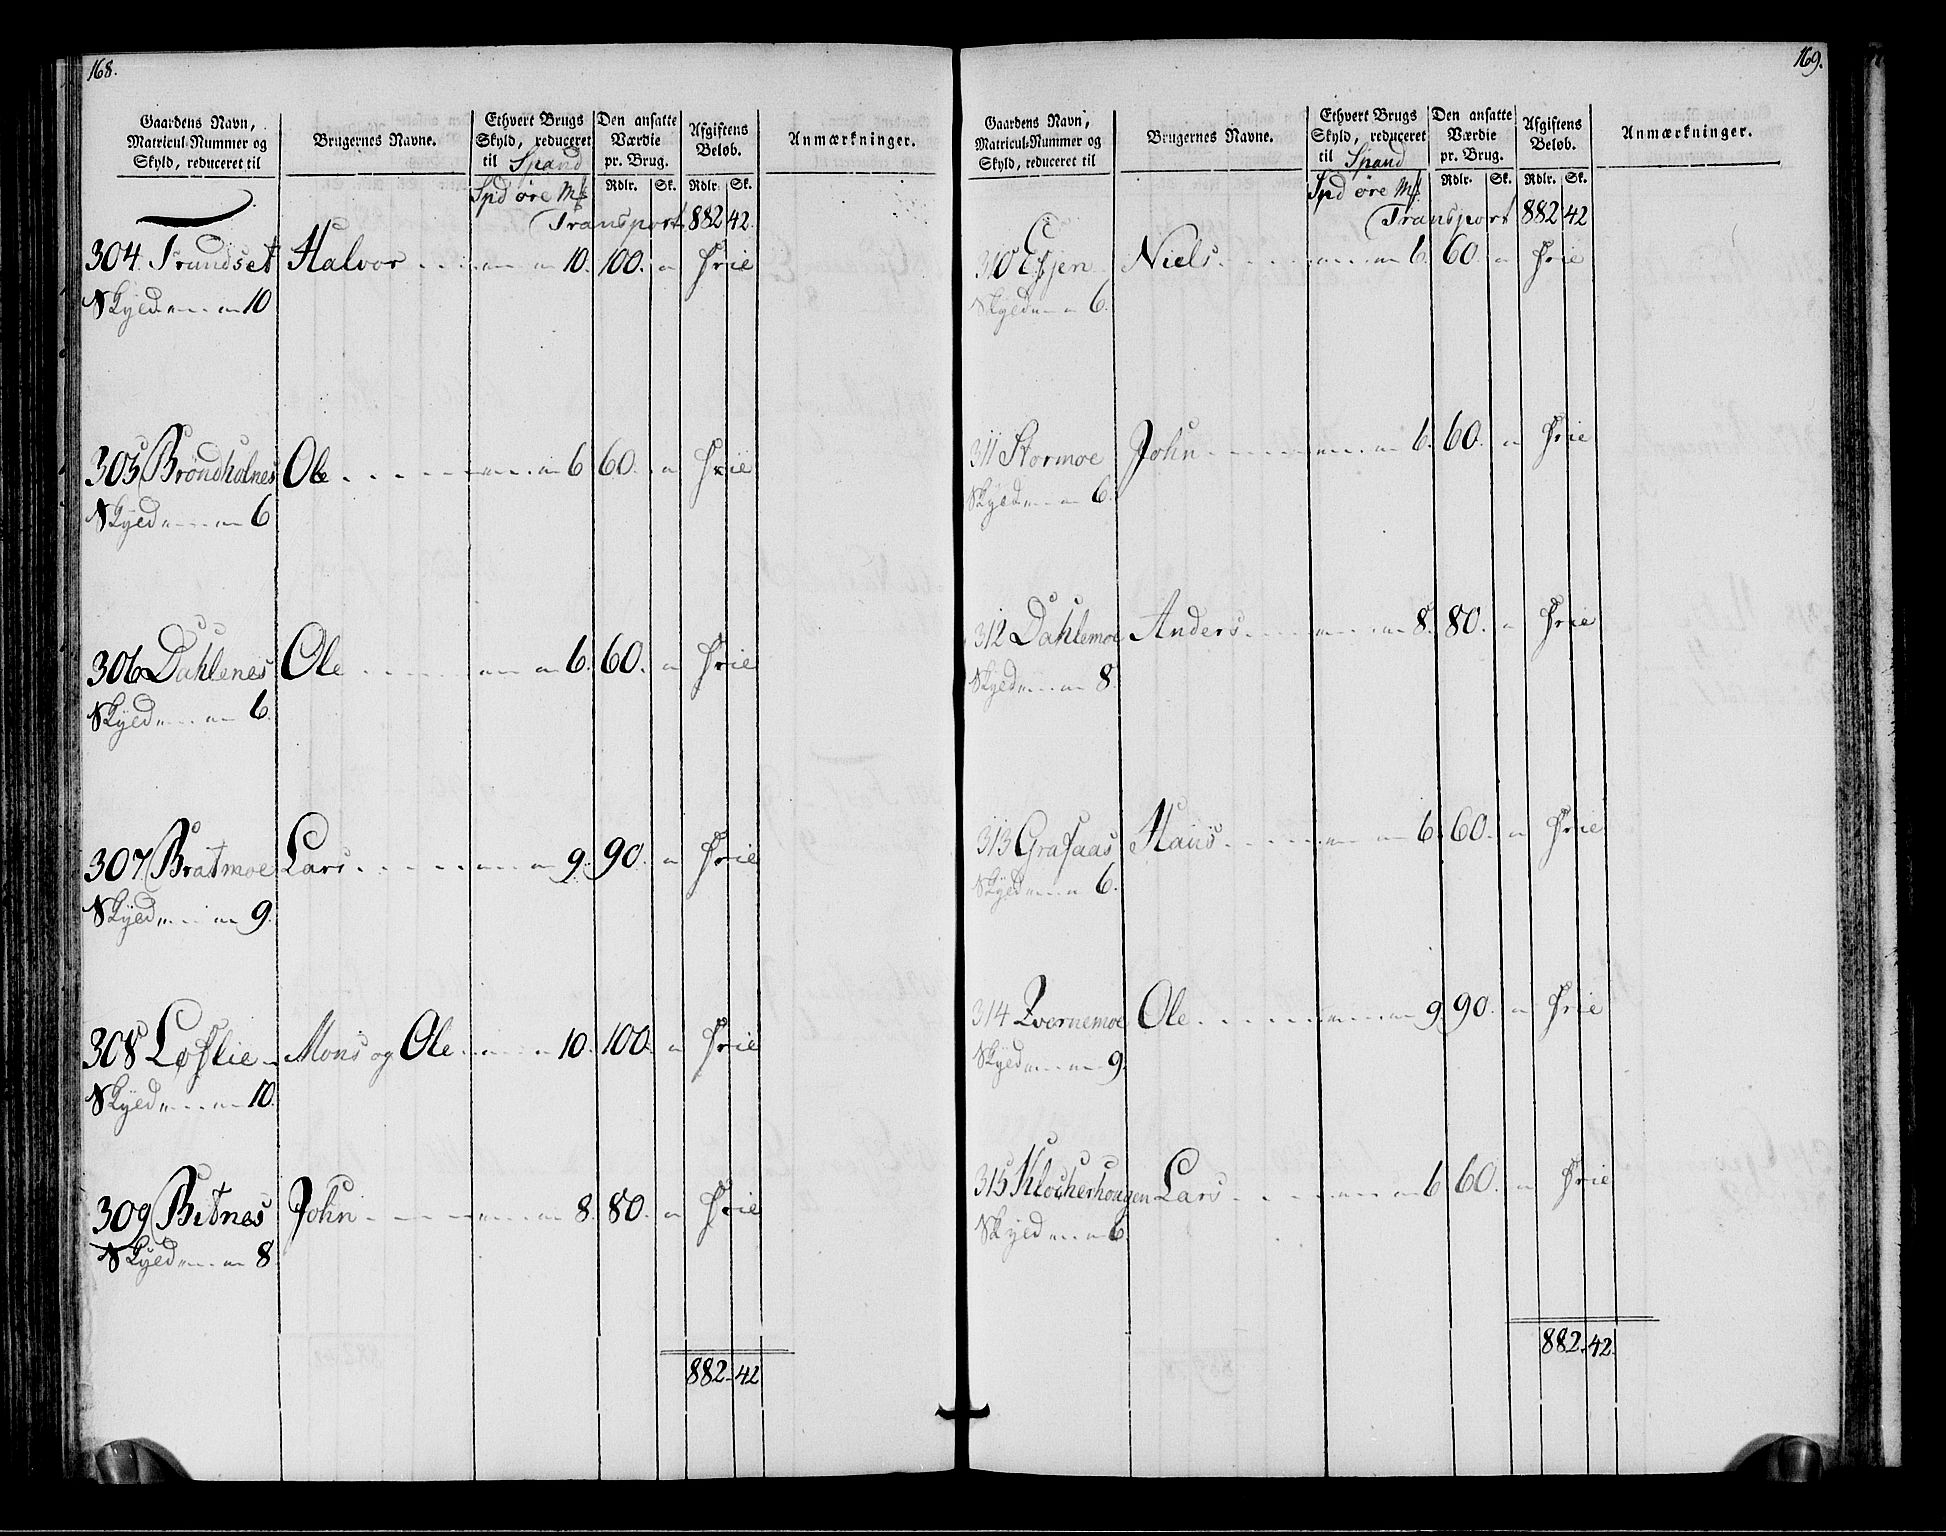 168.
Gaardens Navn, Matricul-Nummer og Skyld, reduceret til | Brugernes Navne. | Ethvert Brugs Skyld, reduceret til Spand | Den ansatte Værdie pr. Brug. | Afgiftens Beløb. | Anmærkninger.
Spd øre Mk | Rdlr. Sk. | Rdlr. Sk.
Transport 882 42.
304 Trundset Halvor 10. 100. Frie
Skyld 10
305 Bröndholnes Ole 6 60. Frie
Skyld 6
306 Dahlenes Ole 6. 60. Frie
Skyld 6.
307 Bratmoe Lars 9. 90. Frie
Skyld 9.
308 Løslie Mons og Ole 10. 100. Frie
Skyld 10.
309 Bitnes John 8. 80. Frie
Skyld 8
882. 42
169.
Gaardens Navn, Matricul-Nummer og Skyld, reduceret til | Brugernes Navne. | Ethvert Brugs Skyld, reduceret til Spand | Den ansatte Værdie pr. Brug. | Afgiftens Beløb. | Anmærkninger.
Spd øre Mk | Rdlr. Sk. | Rdlr. Sk.
Transport 882 42
310 Niels 6. 60. Frie
Skyld 6.
311 Stormoe John 6. 60. Frie
Skyld 6.
312 Dahlemoe Anders 8. 80. Frie
Skyld 8.
313 Grasaas Hans 6. 60. Frie
Skyld 6.
314 Qvernemoe Ole 9. 90. Frie
Skyld 9.
315 Klocherhougen Lars 6 60. Frie
Skyld 6
882. 42.